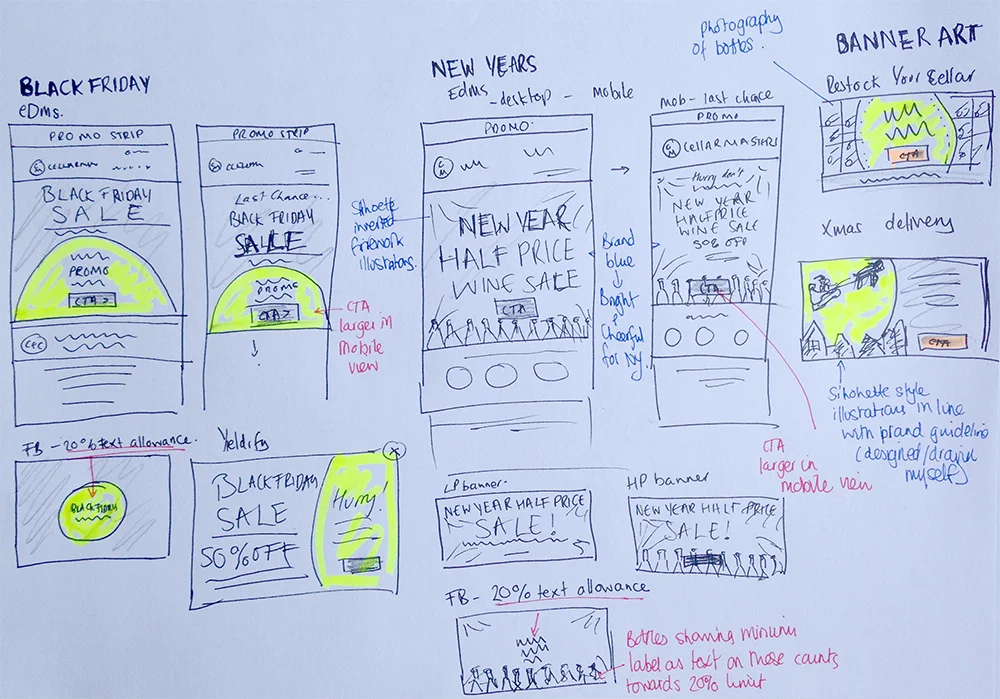 BLACK FRIDAY
eDMs.
PROMO STRIP
CELLARMA
BLACK FRIDAY
SALE
PROMO
CTA >
PROMO STRIP
Last Chance...
BLACK FRIDAY
SALE
PROMO
CTA >
CTA
larger in
mobile
view
FB - 20% text allowance.
BLACK FRIDAY
Yieldify
X
BLACK FRIDAY
SALE
50% OFF
Hurry!
NEW YEARS
Edms - desktop - Mobile
PROMO.
CM
NEW YEAR
HALF PRICE
WINE SALE
CTA
Silhoette
inverted
firework
illustrations.
Brand
blue
Bright
+
Cheerful
for NY
mob - last chace
PROMO
CM CELLARMASTERS
Hurry don't
NEW YEAR
HALF PRICE
WINE SALE
50% OFF
CTA
CTA
larger in
mobile view
LP banner.
NEW YEAR HALF PRICE
SALE!
HP banner
NEW YEAR HALF PRICE
SALE!
FB - 20% text allowance
Bottles showing
label as text on these counts
towards 20% limit
Photography
of bottles.
BANNER ART
Restock Your Cellar
CTA
Xmas delivery
CTA
Sihohette style
illustrations in line
with brand guideline
(designed/drawn
myself)